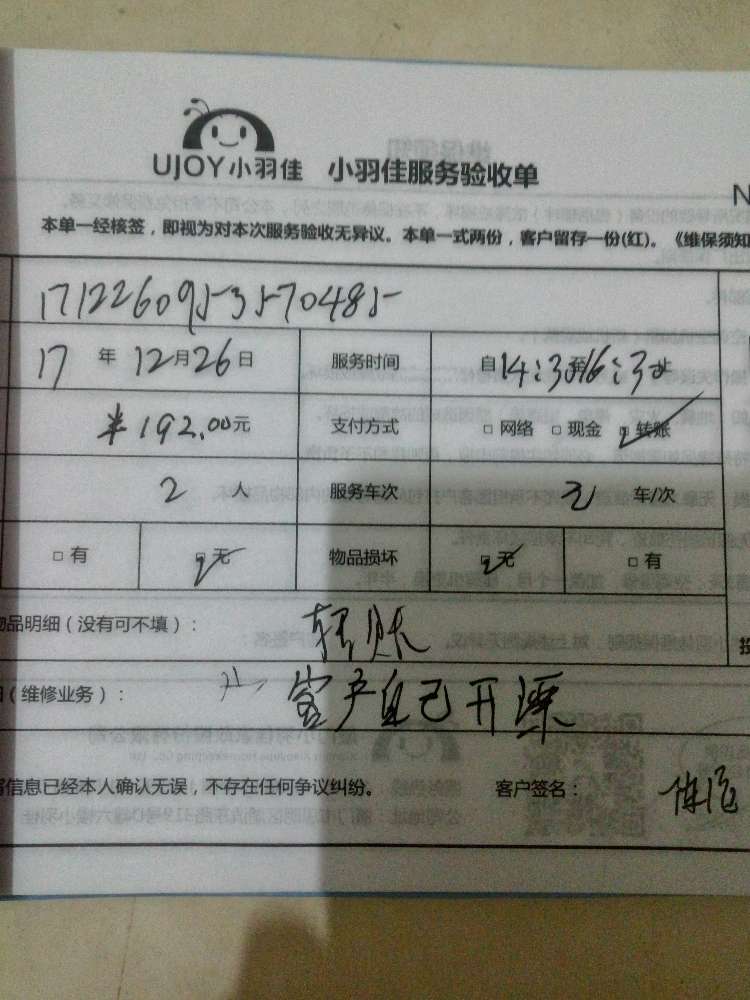 UJOY小羽佳 小羽佳服务验收单
N
本单一经核签，即视为对本次服务验收无异议。本单一式两份，客户留存一份(红)。《维保须知
1712260953570485
17 年 12月26日 服务时间 自14:30至16:30止
¥192.00元 支付方式 □ 网络 □ 现金 □ 转账
2 人 服务车次 无 车/次
□ 有 □ 无 物品损坏 □ 无 □ 有
物品明细（没有可不填）： 转账
（维修业务）： 客户自己开票
信息已经本人确认无误，不存在任何争议纠纷。 客户签名：